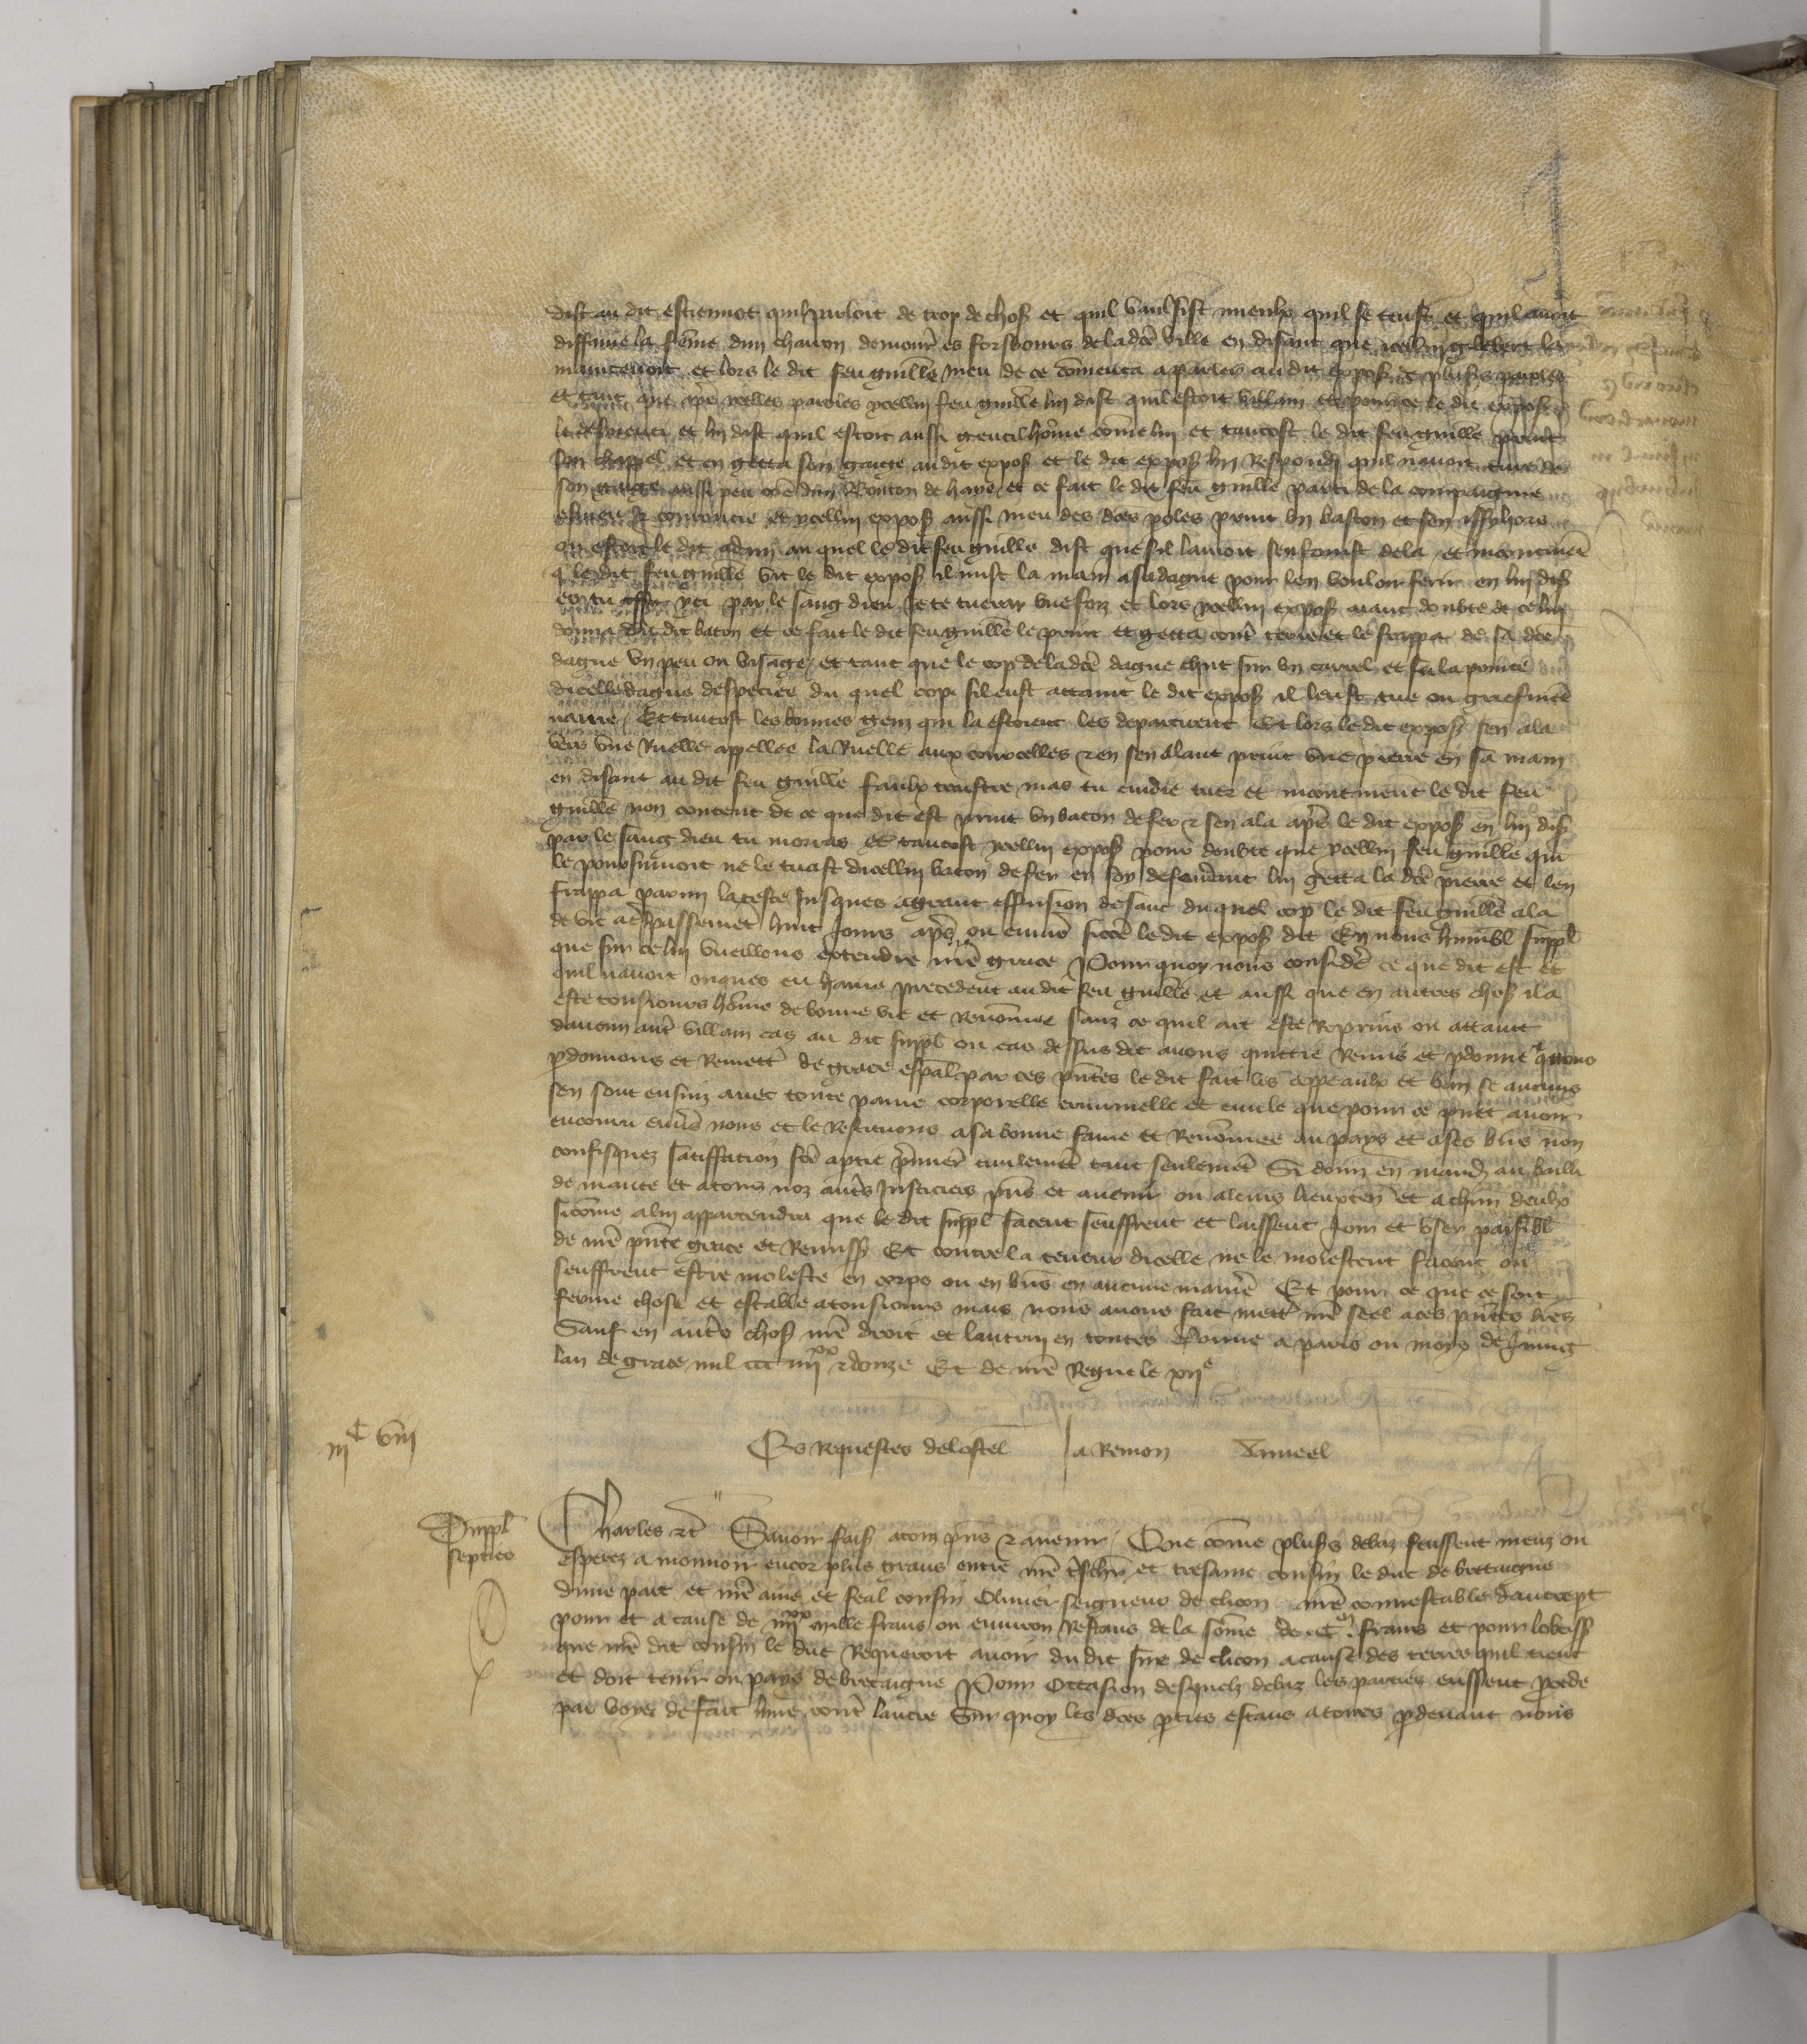 dist au dit estiennot quil parloit de trop de chos et quil vaulsist mieulx quil se teust et quil auoit
diffame la fe͞me dun charon demour̃ es forsbours de la dc̃e ville en disant que icellui gilebert la
maintenoit et lors le dit feu guill͞e meu de ce co͞menca a parler au dit expos de plus͞s paroles
et tant que ap̃s ycelles paroles ycellui feu guill͞e lui dist quil estoit villain et pour ce le dit expos
le desmenti et lui dist quil estoit aussi gentilho͞me co͞me lui et tantost le dit feu guill͞e print
son chappel et en getta son gaige au dit expos et le dit expos lui respondi quil nauoit cure de
son gaige aussi peu co͞e dun bouton de haye et ce fait le dit feu guill͞e parti de la compaignie
esmeu & courroucie et ycellui expos aussi meu des dc̃es p̱oles print un baston et sen issy hors
ou estoit le dit auquel le dit feu guill͞e dist que sil lamoit senfouist de la et incontinẽt
q̃ le dit feu guill͞e vit le dit expos il mist la main a sa dague pour len vouloir ferir en lui dis
es tu yci par le sang dieu Je te tueray une foiz et lors ycellui expos aiant doubte de ce lui
donna du dit baton et ce fait le dit feu guill͞e le print et getta cont̃ terre et le frappa de sa dc̃e
dague un peu ou visage et tant que le cop de la dc̃e dague chut sur un carrel et fu la pointe
dicelle dague despeciee du quel cop sil eust attaint le dit expos il leust tue ou griefmẽt
naure / Et tantost les bonnes gens qui la estoient les departirent Et lors le dit expos sen ala
vers une Ruelle appellee la Ruelle aux courcelles & en sen alant print une pierre en sa main
en disant au dit feu guill͞e faulx triustre mas tu cuidie tuer et incontinent le dit feu
guill͞e non content de ce que dit est print un baton de fer & sen ala ap̃s le dit expos en lui dis
par le sang dieu tu morras Et tantost ycellui expos pour doubte que ycellui feu guill͞e qui
le poursuiuoit ne le tuast dicellui baton de fer en soy defendant lui getta la dc̃e pierre et len
frappa parmi la teste Jusques a grant effusion de sanc du quel cop le dit feu guill͞e ala
de vie a trespassemẽt huit Jours ap̃s ou enuirõ sicõe le dit expos dit En nous humbl suppl
que sur ce lui vueillons extendre nr̃e grace Pour quoy nous consider̃ ce que dit est et
quil nauoit onques eu haine precedent au dit feu guill͞e et aussi que en autres chos il a
este tousiours ho͞me de bonne vie et renom͞mee sanz ce quil ait este repris ou attaint
daucun aut̃ villain cas au dit suppl̃ ou cas dessus dit auons quittie Remis et p̱donne q̃ttons
p̱donnons et Remett̃ de grace esp̃al par ces p̃ntes le dit fait les appeaulx et ban se aucuns
sen sont ensuiz auec toute paine corporelle criminelle et ciuile que pour ce puet auoir
encouru enũs nous et le restituons a sa bonne fame et Renom͞mee au pays et a ses biẽs non
confisquez satiffacion fc̃e a p̱tie p̃mier̃ ciuilemẽt tant seulemẽt Si donn̄ en mand au bailli
de mante et a tous noz aut̃s Justiciers p̃ns et auenir ou a leurs lieuxten̄ et a ch̃un deulx
sico͞me a lui appartendra que le dit suppl̃ facent seuffrent et laissent Joir et user paisibl̃
de nr̃e p̃nte grace et Remiss Et contre la teneur dicelle ne le molestent facent ou
seuffrent estre moleste en corps ou en biẽs en aucune manier̃ Et pour ce que ce soit
ferme chose et estable a tousiours mais nous auons fait mett̃ nr̃e seel a ces p̃ntes lr̃es
Sauf en aut̃s chos nr̃e droit et lautrui en toutes Donne a paris ou moys de Juing
lan de grace mil ccc iiii xx & douze Et de nr̃e Regne le xii e
iii C viii
Es requestes de lostel Ja Remon
Suppl
septies
Charles &c̃ Sauoir fais a touz p̃ns & auenir / Que co͞me plus͞s debaz feussent meuz ou
esperez a mouuoir encor plus grans entre nr̃e t̃scher et tresame cousin le duc de bretaigne
dune part et nr̃e ame et feal cousin Oliuier seigneur de clicon nr̃e connestable dautre p̱t
pour et a cause de iiii xx mille frans ou enuiron restans de la som͞e de C m frans et pour lobeiss
que nr̃e dit cousin le duc Requeroit auoir du dit sire de clicon a cause des terres quil tient
et doit tenir ou pays de bretaigne Pour occasion desquelx debaz les parties eussent p̱cede
par voyes de fait lune cont̃ lautre Sur quoy les dc̃es p̱ties estans a tours p̱deuant nous